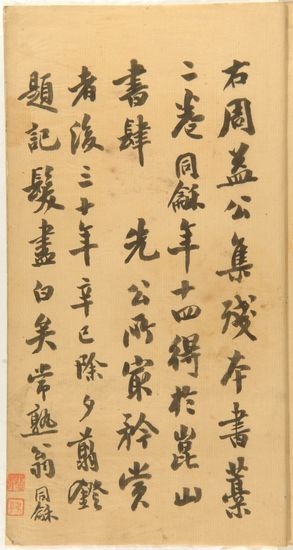 右周益公集殘本書藁
二卷同龢年十四得於崑山
書肆　先公所寂矜賞
者後三十年辛巳除夕翦鐙
題記鬢盡白矣常熟翁同龢